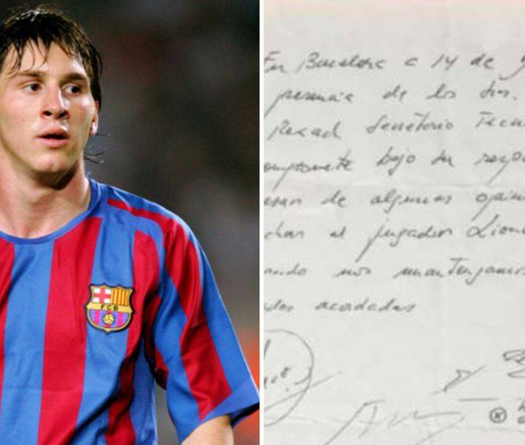 En Barcelona a 14 de
presencia de los Srs.
Rexach Secretario Tecn
bajo su resp
de algunas opin
char al jugador Lione
ando nos mantengamos
acordadas